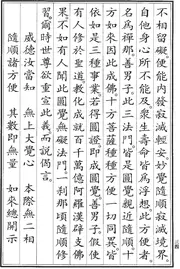 不相留礙便能內發寂滅輕安妙覺隨順寂滅境界
自他身心所不能及眾生壽命皆為浮想此方便者
名為禪那善男子此三法門皆是圓覺親近隨順十
方如來因此成佛十方菩薩種種方便一切同異皆
依如是三種事業若得圓證即成圓覺善男子假使
有人修於聖道教化成就百千萬億阿羅漢辟支佛
果不如有人聞此圓覺無礙法門一剎那頃隨順修
習爾時世尊欲重宣此義而說偈言
威德汝當知 無上大覺心 本際無二相
隨順諸方便 其數即無量 如來總開示